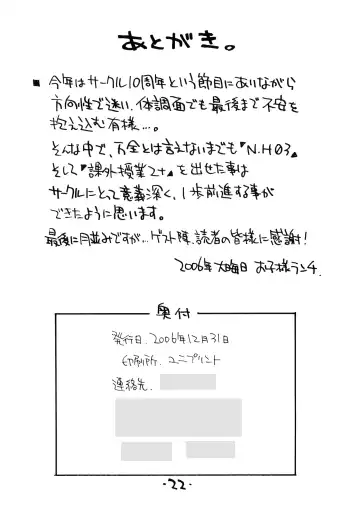 あとがき。
■ 今年はサークル10周年という節目にあいながら
方向性で迷い、体調面でも最後まで不安を
抱え込む有様…。
そんな中で、万全とは言えないまでも『N.H03』
そして『課外授業2+』を出せた事は
サークルにとって意義深く、1歩前進する事が
できたように思います。
最後に月並みですが…ゲスト陣、読者の皆様に感謝!
2006年大晦日 お子様ランチ.
奥付
発行日. 2006年12月31日
印刷所. ユニプリント
連絡先.
・22・